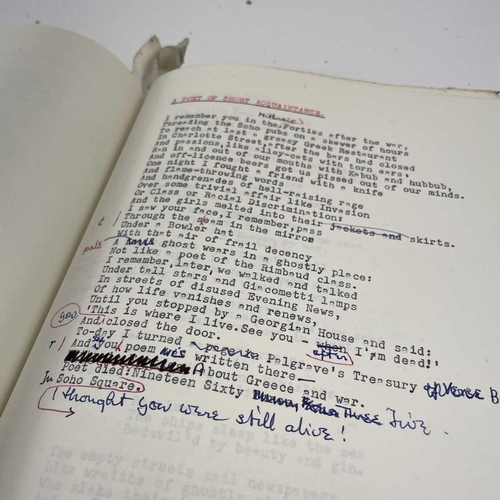 A POET OF SHORT ACQUAINTANCE.
I remember you in the Forties after the war,
Threading the Soho pubs on a skewer of hours
To reach at last a greasy Greek Restaurant
In Charlotte Street, after the bars had closed
And passions, like alley-cats with torn ears,
Ran in and out of our mouths with Kabub and hubbub,
And off-licence beers got us pissed out of our minds.
One night I fought a friend with a knife
And flame-throwing words
And handgrenades of hell-raising rage
Over some trivial affair like Infanticide
Or Class or Racial Discrimination:
And the girls melted into their jackets and skirts.
I saw your face, I remember, pass
t / Through the steam in the mirror
Under a Bowler hat
With that air of frail decency
pale A ghost wears in a ghostly place:
Not like a poet of the Rimbaud class.
I remember, later, we walked and talked
Under tall stars and Giacometti lamps
In streets of disused Evening News,
Of how life vanishes and renews,
Until you stopped by a Georgian House and said:
you 'This is where I live. See you - when after I'm dead!'
And closed the door.
To-day I turned Palgrave's Treasury of Verse
r / And you poem was written there—
About Greece and war.
Poet died: Nineteen Sixty Five.
In Soho Square.
I thought you were still alive!
The ships sleep like the sea
Bedevil'd by beauty and gin.
The empty streets sail newspapers
Like wraiths of ghostly